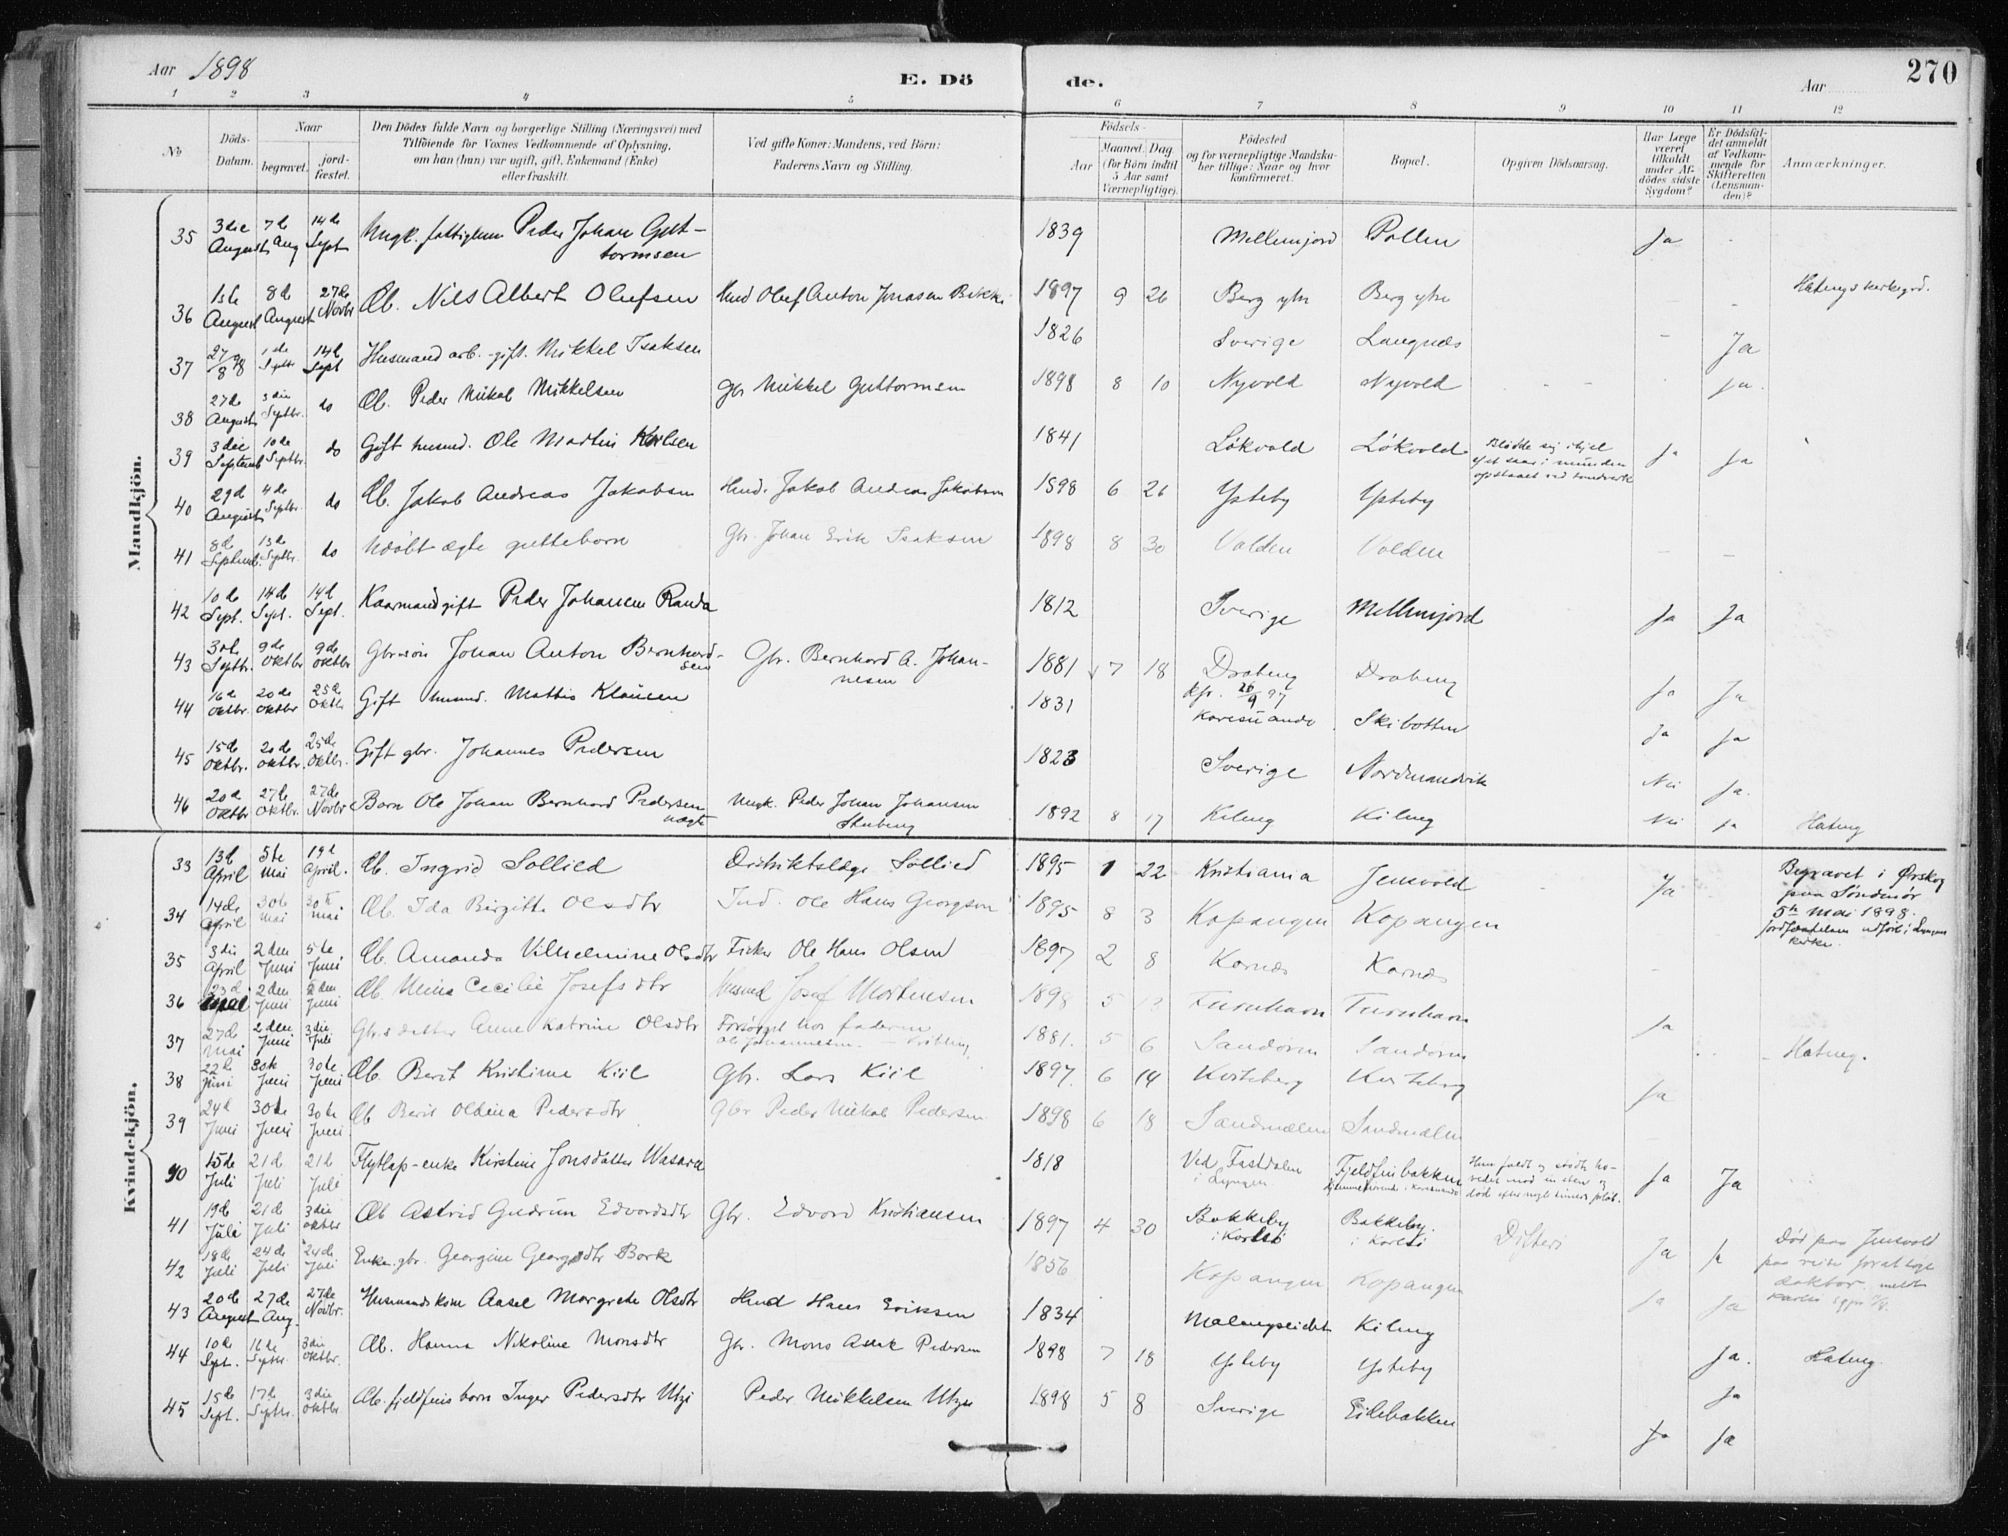 Aar 1898
E. Dö
de.
Aar
270
1 2 3 4 5 6 7 8 9 10 11 12
No
Döds-
Datum.
Naar
begravet.
jord-
fæstet.
Den Dödes fulde Navn og borgerlige Stilling (Næringsvei) med
Tilföiende for Voxnes Vedkommende af Oplysning,
om han (hun) var ugift, gift, Enkemand (Enke)
eller fraskilt.
Ved gifte Koner: Mandens, ved Börn:
Faderens Navn og Stilling.
Födsels-
Aar
Maaned. Dag
(for Börn indtil
5 Aar samt
Værnepligtige).
Födested
og for værnepligtige Mandsku-
ber tillige: Naar og hvor
konfirmeret.
Bopæl.
Opgiven Dödsaarsag.
Har Læge
været
tilkaldt
under Af-
dödes sidste
Sygdom?
Er Dödsfal-
det anmeldt
af Vedkom-
mende for
Skifteretten
(Lensman-
den)?
Anmærkninger.
Mandkjön.
35 3die August 7de Aug 14de Sept Ungk. fattiglem Peder Johan Gut-
tormsen 1839 Mellemjord Pollen Ja
36 1ste August 8de August 27de Novbr Æb. Nils Albert Olufsen Husmd Oluf Anton Jonasen 1897 9 26 Berg ytre Berg ytre Hatengs kirkegrd.
37 27/8 98 1ste Sept 14de Sept Husmand arb. gift. Mikkel Isaksen 1826 Sverige Langnæs Ja
38 27de August 3die Septbr. do Æb. Peder Mikal Mikkelsen Gbr Mikkel Guttormsen 1898 8 10 Nyvold Nyvold Ja.
39 3die Septemb 10de Septbr. do Gift husmd. Ole Martin Karlsen 1841 Løkvold Løkvold Blødde sig ihjel
i munden
Ja Ja
40 29de August 4de Septbr. do Æb. Jakob Andreas Jakobsen Husmd. Jakob Andreas Jakobsen 1898 6 26 Ysteby Ysteby
41 8de Septemb. 13de Septbr. do Udøbt ægte guttebarn Gbr. Johan Erik Isaksen 1898 8 30 Volden Volden
42 10de Sept. 14de Sept. 14de Sept. Kaarmand gift Peder Johansen Randa 1812 Sverige Mellemjord Ja Ja
43 30te Septbr 9de Oktbr 9de Oktbr Gbr. søn Johan Anton Bernhard-
sen Gbr. Bernhard A. Johan-
nesen 1881 7 18 Draberg Draberg
Kfr. 26/9 97 Ja Ja
44 16de Oktbr. 20de Oktbr 25de Oktbr Gift husmd. Mattis Klausen 1831 Karesuando Skibotten Ja Ja
45 15de Oktbr. 20de Oktbr. 25de Oktbr. Gift gbr. Johannes Pedersen 1823 Sverige Nordmandvik Nei Ja.
46 20de Oktbr 27de Oktbr. 27de Novbr Barn Ole Johan Bernhard Pedersen
uægte Ungk. Peder Johan Johansen
1892 8 17 Kileng Kileng Nei Ja Hateng
Kvindekjön.
33 13de April 5te Mai 19de April. Æb. Ingrid Sollied Distriktslæge Sollied 1895 1 22 Kristiania Jensvold Ja Begravet i Ørskog
paa Søndmør
5te Mai 1898.
Jordfæstelsen udført i Lyngens
kirke.
34 14de April 30te Mai 30te Mai Æb. Ida Birgitte Olsdtr Ind. Ole Hans Georgsen 1895 8 3 Kopangen Kopangen
35 3die April 2den Juni 5te Juni Æb. Amanda Vilhelmine Olsdtr Fisker Ole Hans Olsen 1897 2 8 Kornæs Kornæs
36 23de Mai 2den Juni 2den Juni Æb. Nina Cecilie Josefsdtr Husmd Josef Mortensen 1898 5 Furuhavn Furuhavn
37 27de Mai 2den Juni 3die Juli Gbr.s datter Anne Katrine Olsdtr Forsørget hos faderen
Ole Johannesen 1881. 5 6 Sandøren Sandøren Ja Hateng.
38 22de Juni 30te Juni 30te Juni Æb. Berit Kristine Kiil Gbr. Lars Kiil 1897. 6 14 Kviteberg Kviteberg Ja
39 24de Juni 30te Juni 30te Juni Æb Berit Oldina Pedersdtr Gbr Peder Mikal Pedersen 1898 6 18 Sandmælen Sandmælen
40 15de Juli 21de Juli 21de Juli Flytlap-enke Kirstine Jonsdatter Wasara 1818 Ved Fastdalen
i Lyngen Fjeldfinbakken
hjemmehørende i Karesuando Hun faldt og stødte ho-
vedet mod en sten og
død efter nogle timers forløb. Ja Ja
41 19de Juli 21de Juli 3die Oktbr Æb Astrid Gudrun Edvardsdtr Gbr. Edvard Kristiansen 1897 4 30 Bakkeby
i Karlsø Bakkeby.
i Karlsø Difteri Ja Ja Død paa Jensvold
paa reise for at søge
doktor. meldt
42 18de Juli 24de Juli 24de Juli Enke gbr. Georgine Georgsdtr Bork 1856 Kopangen Kopangen Ja Ja
43 20de August 27de Aug. 27de Novbr. Husmandskone Aasel Margrete Olsdtr Husmd Hans Eriksen 1834 Malangseidet Kileng Ja. Hateng.
44 10de Sept. 16de Septbr. 3die Oktbr. Æb. Hanna Nikoline Monsdtr Gbr. Mons Aslak Pedersen 1898 7 18 Ysteby Ysteby Ja
45 15de Sept. 17de Septbr. 3die Oktbr Æb. fjeldfins barn Inger Pedersdtr Utzi Peder Mikkelsen Utzi 1898 5 8 Sverige Eilebakken Ja Ja